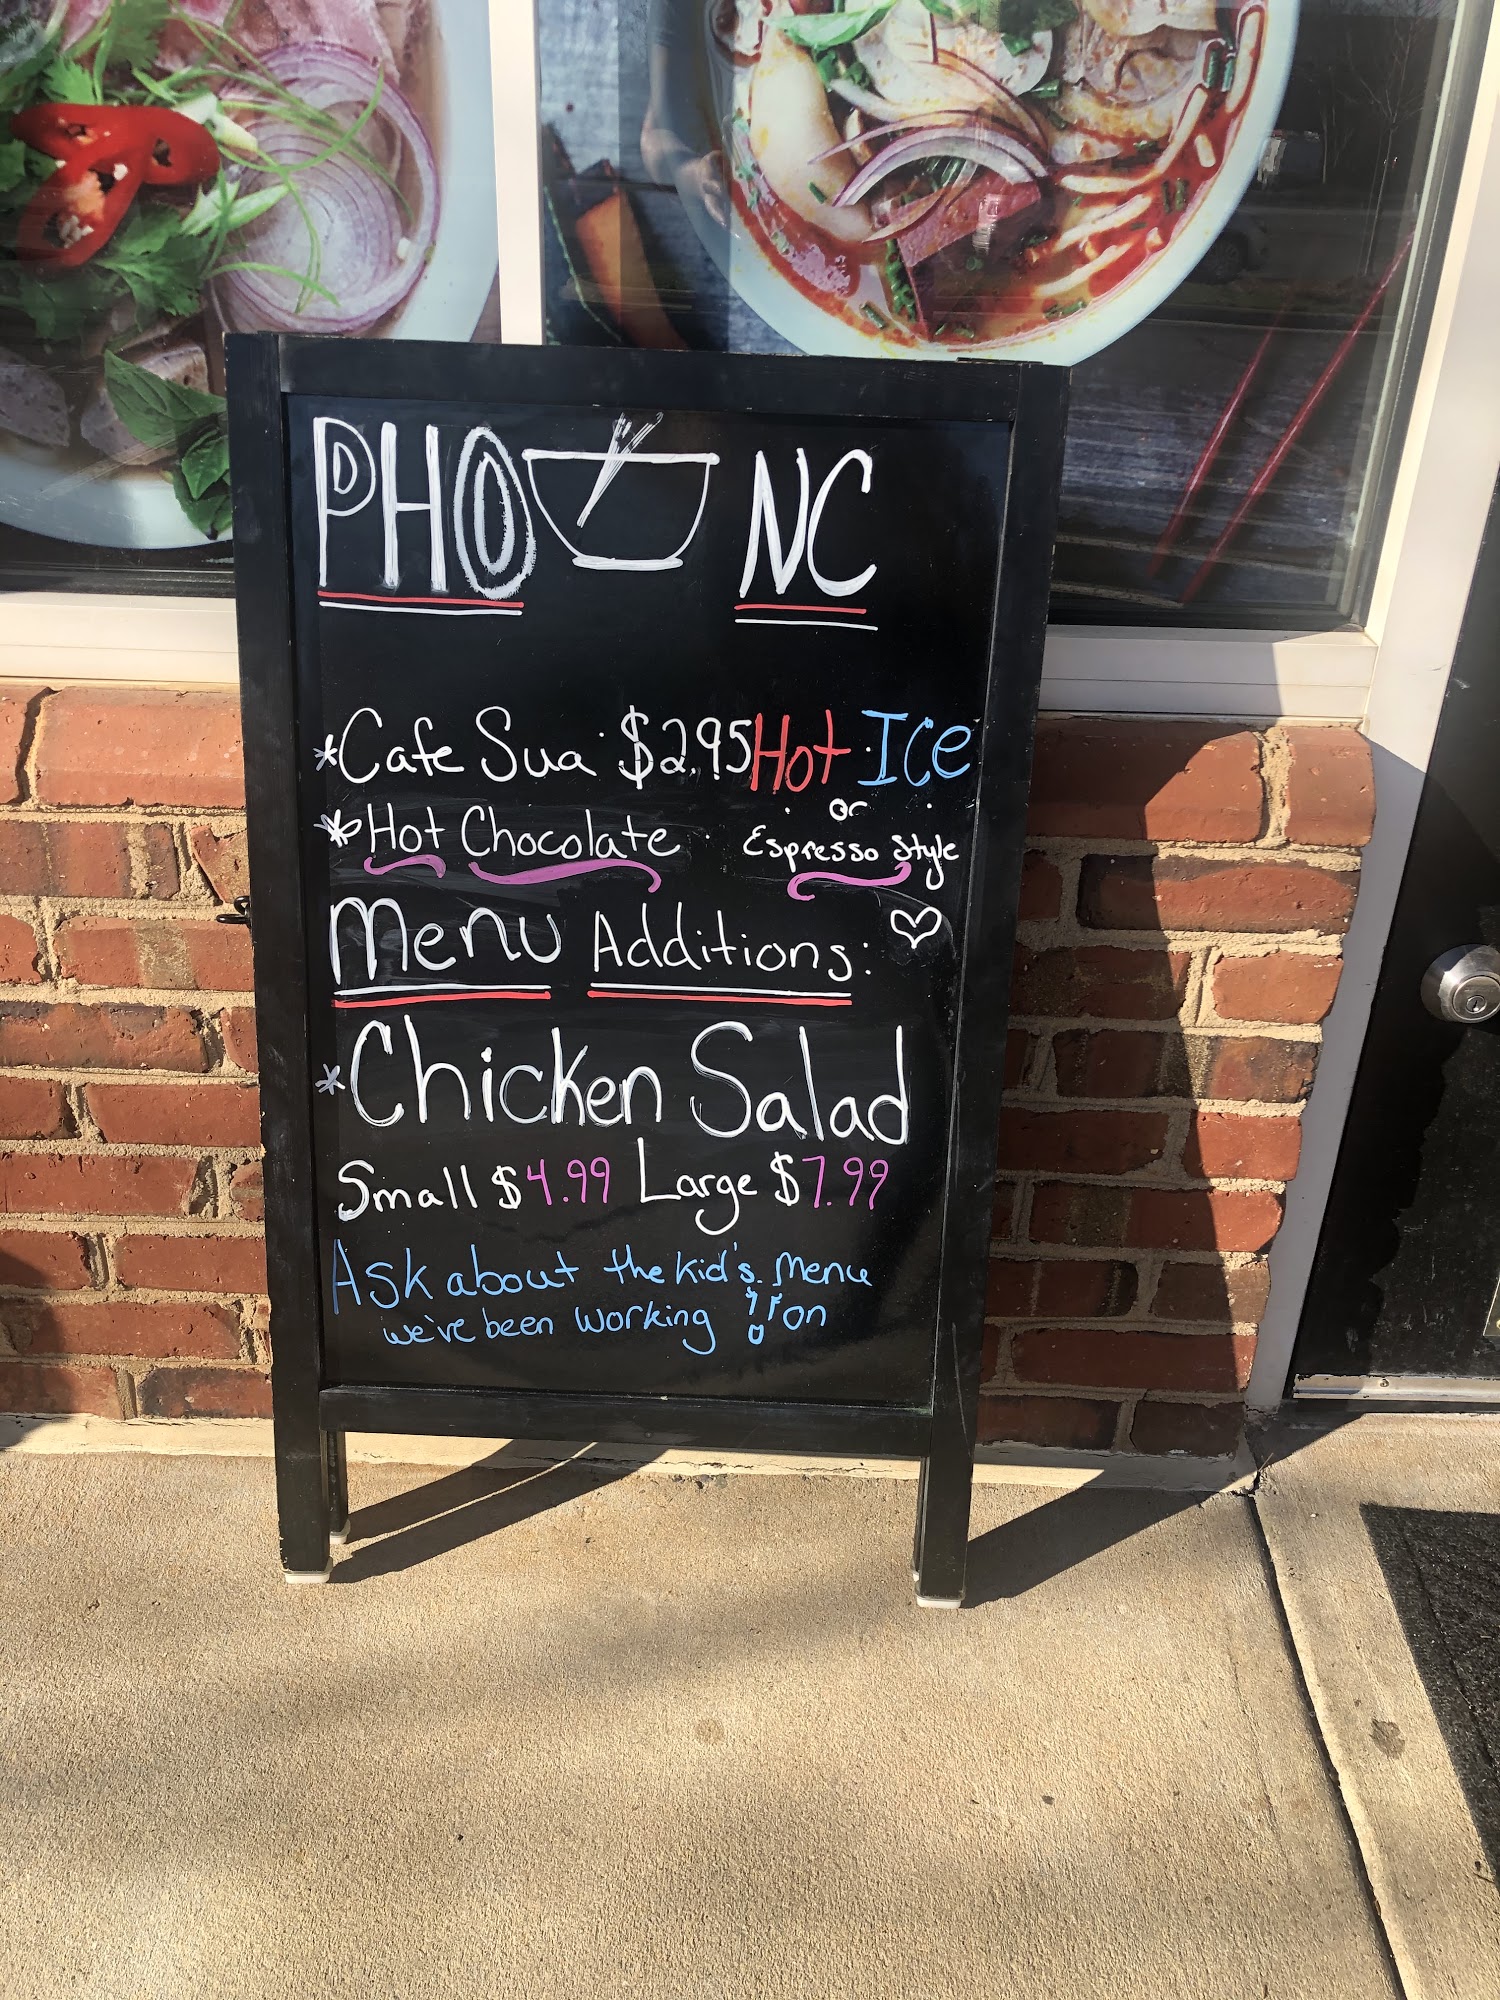 PHO NC
*Cafe Sua $2.95 Hot ICe
or
*Hot Chocolate Espresso Style
Menu Additions:
*Chicken Salad
Small $4.99 Large $7.99
Ask about the kid's menu
we've been working on